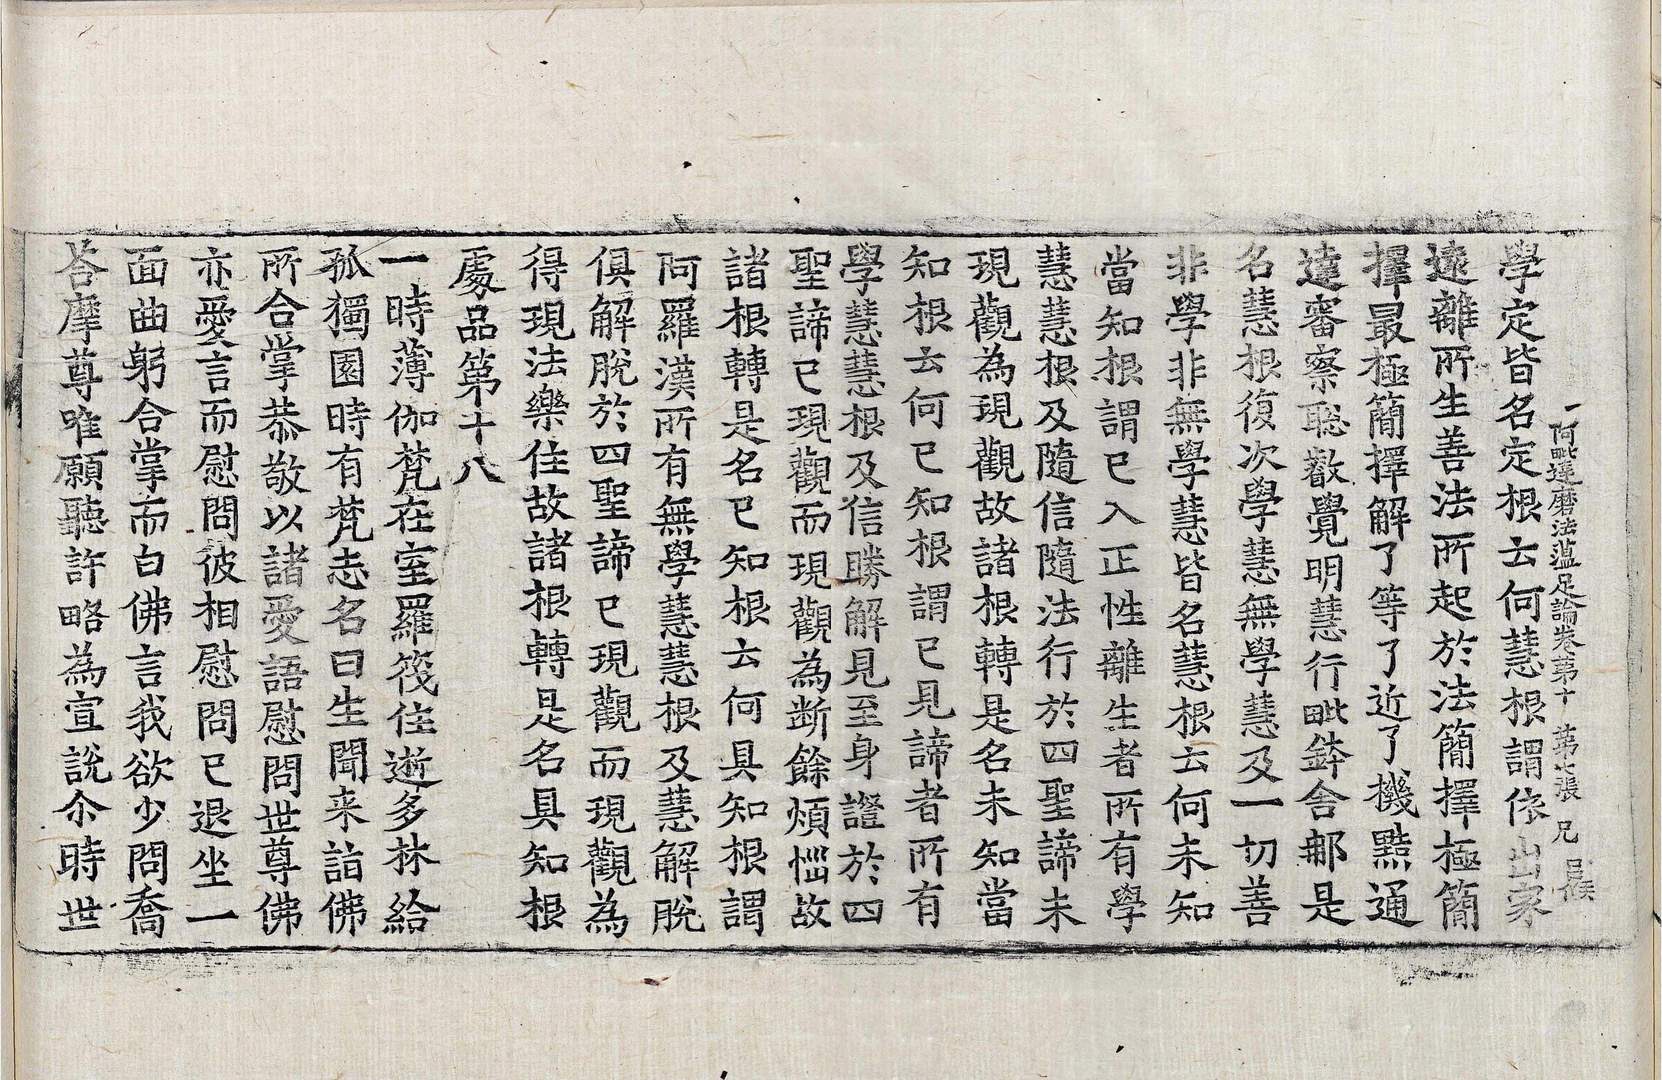 阿毗達磨法蕴足論卷第十 第七張 兄
學定皆名定根云何慧根謂依出家
遠離所生善法所起於法簡擇極簡
擇最極簡擇解了等了近了機黠通
達審察聡叡覺明慧行毗鉢舍那是
名慧根復次學慧無學慧及一切善
非學非無學慧皆名慧根云何未知
當知根謂已入正性離生者所有學
慧慧根及隨信隨法行於四聖諦未
現觀為現觀故諸根轉是名未知當
知根云何已知根謂已見諦者所有
學慧慧根及信勝解見至身證於四
聖諦已現觀而現觀為断餘煩惱故
諸根轉是名已知根云何具知根謂
阿羅漢所有無學慧慧根及慧解脫
俱解脫於四聖諦已現觀而現觀為
得現法樂住故諸根轉是名具知根
處品第十八
一時薄伽梵在室羅筏住逝多林給
孤獨園時有梵志名曰生聞来詣佛
所合掌恭敬以諸愛語慰問世尊佛
亦愛言而慰問彼相慰問已退坐一
面曲躬合掌而白佛言我欲少問喬
荅摩尊唯願聽許略為宣說尒時世